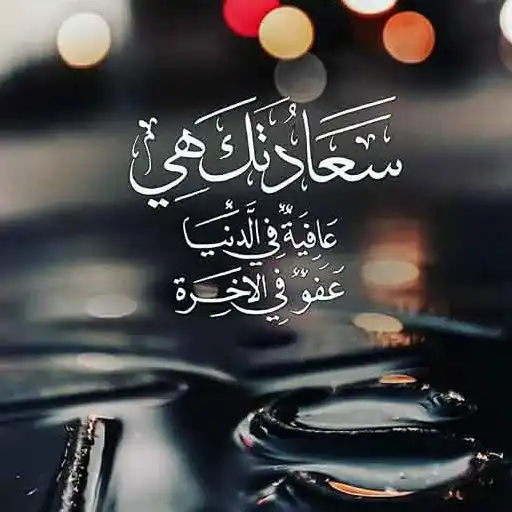 سَعَادُتَكَ هَيِ
عَافِيَةٌ فِي الَّدنُيَا
عَفوٌ فِي الاخَرِة